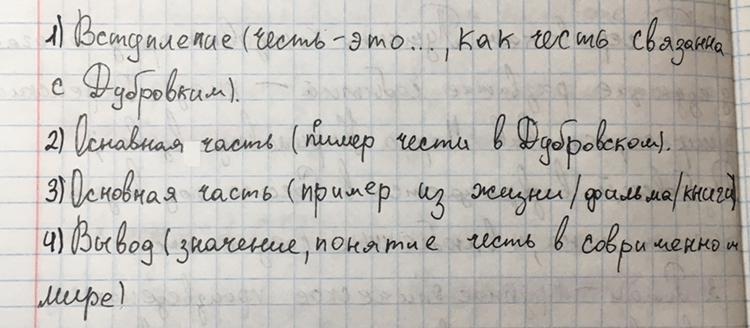 1) Вступление (честь - это..., как честь связанна
с Дубровким).
2) Оснавная часть (пимер чести в Дубровском).
3) Основная часть (пример из жизни/фильма/книги)
4) Вывод (значение, понятие честь в соврименном
мире)